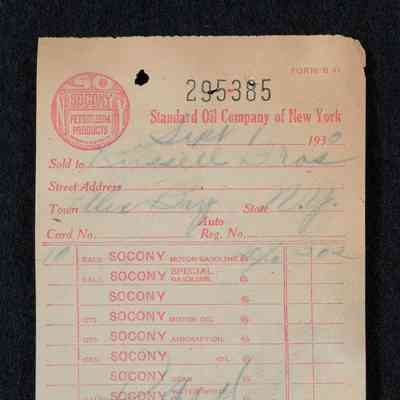 FORM B 41
295385
SO
SOCONY
PETROLEUM
PRODUCTS
Standard Oil Company of New York
Sept 1 1930
Sold to Russell Bros
Street Address
Town Alex Bay State N.Y.
Auto
Card No. Reg. No.
10 GALS. SOCONY MOTOR GASOLINE @
GALS. SOCONY SPECIAL GASOLINE @
SOCONY @
QTS. SOCONY MOTOR OIL @
QTS. SOCONY AIRCRAFT OIL @
SOCONY OIL @
SOCONY GEAR @
SOCONY